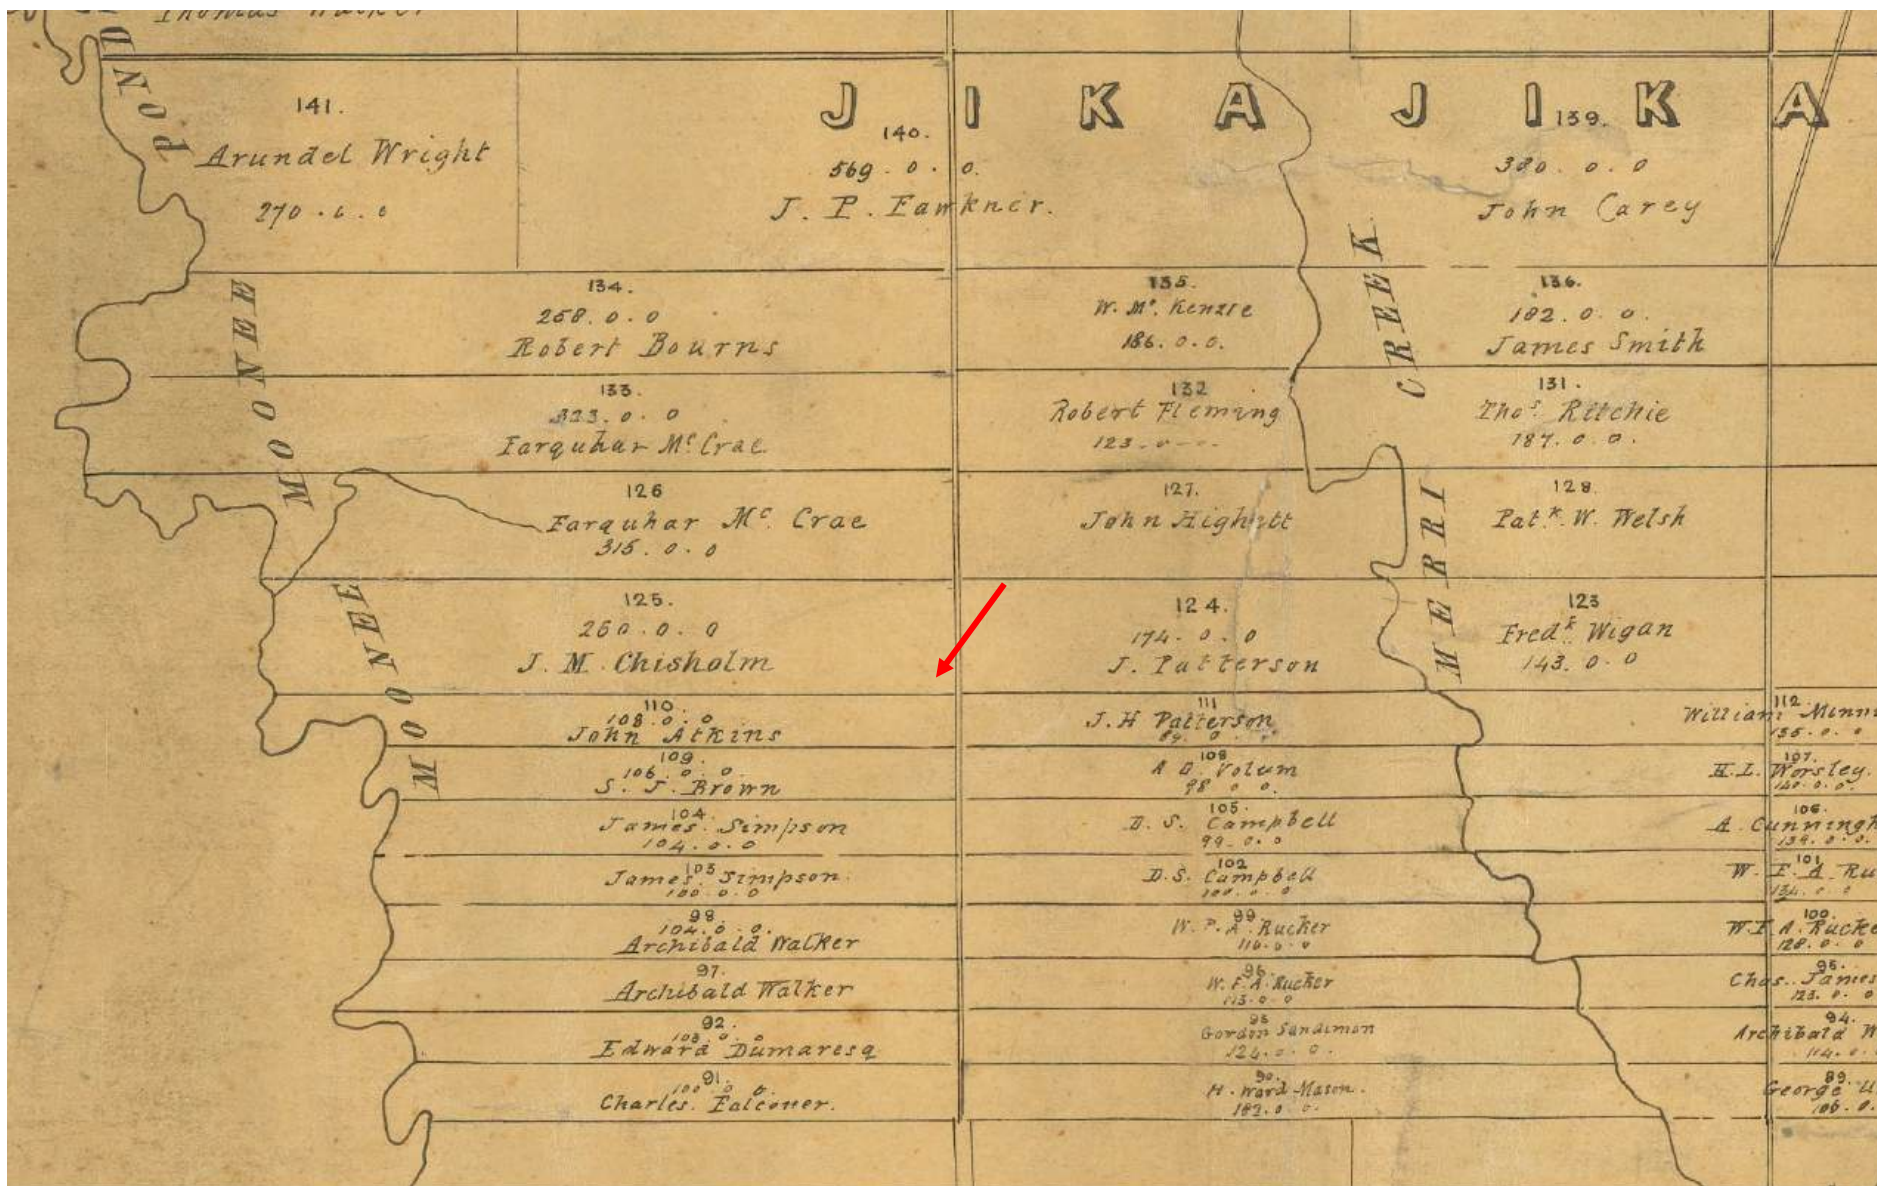 Thomas Walker
JIKA JIKA
POND
141.
Arundel Wright
270. 0. 0
140.
569. 0. 0.
J. P. Fawkner.
139.
380. 0. 0
John Carey
MOONEE
134.
258. 0. 0
Robert Bourns
135.
W. Mc. Kenzie
186. 0. 0.
CREEK
136.
182. 0. 0.
James Smith
133.
323. 0. 0
Farquhar Mc Crae
132
Robert Fleming
123. 0
131.
Thos. Ritchie
187. 0. 0.
126
Farquhar Mc. Crae
315. 0. 0
127.
John Highett
MERRI
128.
Patk. W. Welsh
MOONEE
125.
260. 0. 0
J. M. Chisholm
124.
174. 0. 0
J. Patterson
123
Fredk. Wigan
143. 0. 0
110.
108. 0. 0
John Atkins
111
J. H Patterson
89. 0
112
William
135. 0. 0
109.
106. 0. 0.
S. J. Brown
108
A D Volum
98 0 0.
107.
H. L. Worsley.
140. 0. 0.
104.
James Simpson
104. 0. 0
105.
D. S. Campbell
99. 0. 0
106.
A. Cunningh
139. 0. 0.
103
James Simpson.
100. 0. 0
102
D. S. Campbell
100. 0. 0
101
W. F. A. Ru
134. 0. 0
98
104. 0. 0.
Archibald Walker
99.
W. F. A. Rucker
116. 0. 0
100.
W. F. A. Rucke
128. 0. 0
97.
Archibald Walker
96.
W. F. A. Rucker
113. 0. 0
95.
Chas. James
123. 0. 0
92.
103. 0. 0
Edward Dumaresq
93
Gordon Sandiman
124. 0. 0.
94.
Archibald W
114. 0.
91.
100 0 0.
Charles. Falconer.
90.
H. Ward Mason.
182. 0. 0.
89.
George
106. 0.